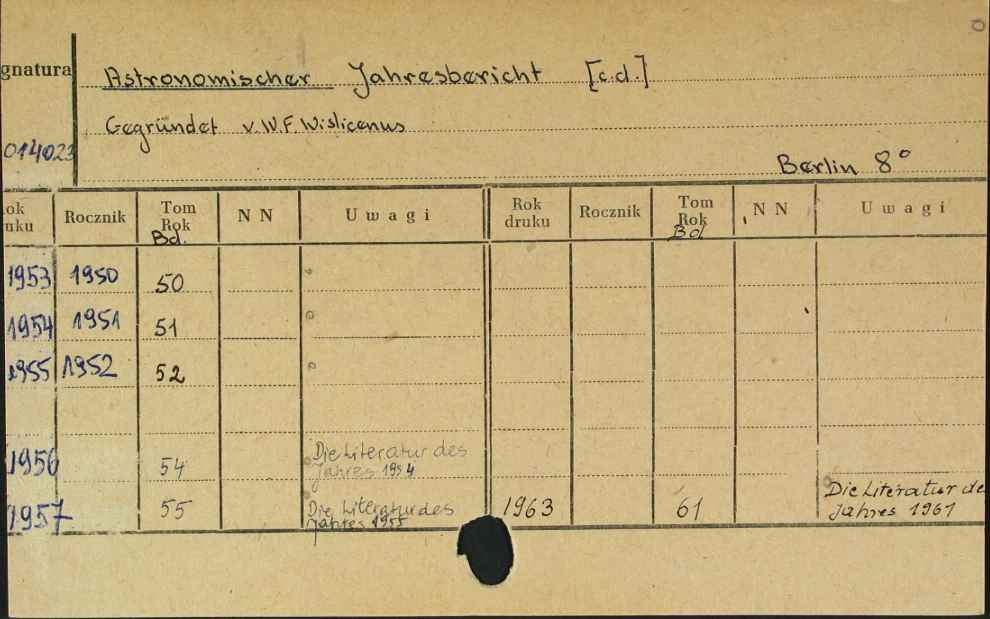 gnatura
Astronomischer Jahresbericht [c.d.]
Gegründet v. W.F. Wislicenus
014023
Berlin 8°
ok
uku Rocznik Tom
Rok
Bd. NN Uwagi Rok
druku Rocznik Tom
Rok
Bd NN Uwagi
1953 1950 50
1954 1951 51
1955 1952 52
1956 54 Die Literatur des
Jahres 1954
1957 55 Die Literatur des
Jahres 1955 1963 61 Die Literatur de
Jahres 1961